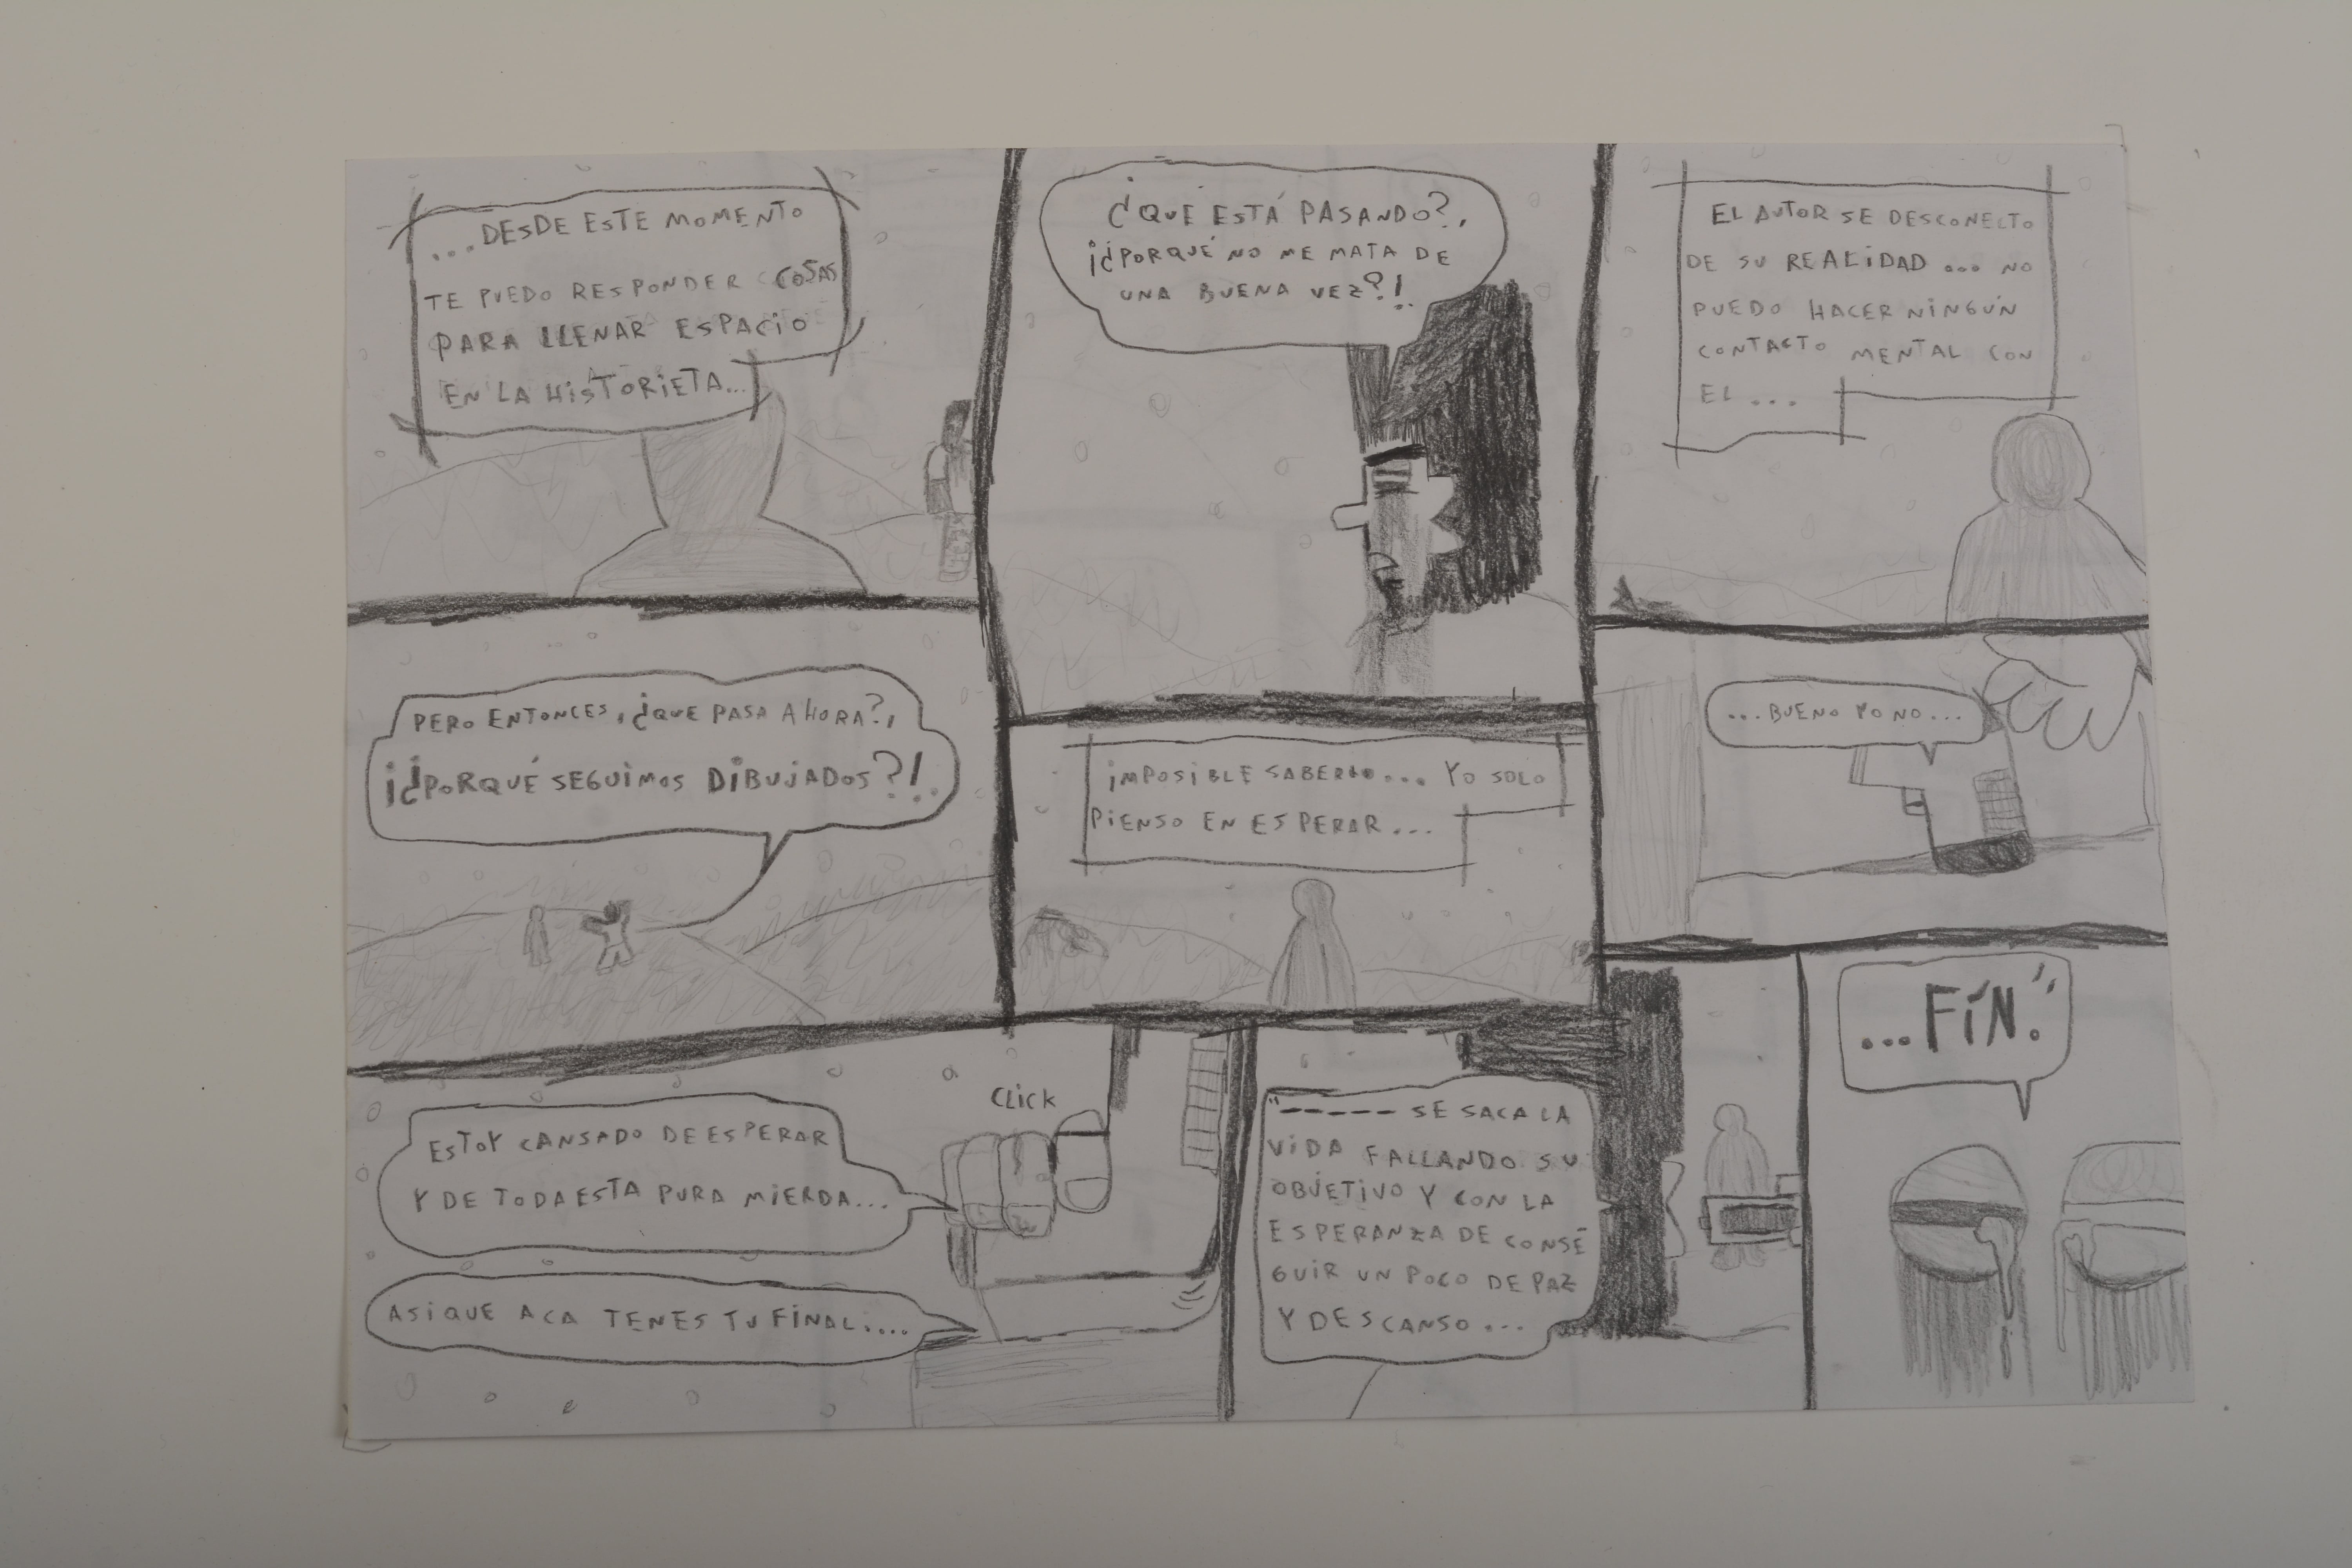 ...DESDE ESTE MOMENTO
TE PUEDO RESPONDER COSAS
PARA LLENAR ESPACIO
EN LA HISTORIETA...
¿QUÉ ESTÁ PASANDO?,
¡¿PORQUÉ NO ME MATA DE
UNA BUENA VEZ?!.
EL AUTOR SE DESCONECTO
DE SU REALIDAD... NO
PUEDO HACER NINGÚN
CONTACTO MENTAL CON
EL...
PERO ENTONCES, ¿QUE PASA AHORA?,
¡¿PORQUÉ SEGUIMOS DIBUJADOS?!.
IMPOSIBLE SABERLO... YO SOLO
PIENSO EN ESPERAR...
...BUENO YO NO...
CLICK
ESTOY CANSADO DE ESPERAR
Y DE TODA ESTA PURA MIERDA...
ASI QUE ACA TENES TU FINAL:...
"----- SE SACA LA
VIDA FALLANDO SU
OBJETIVO Y CON LA
ESPERANZA DE CONSE
GUIR UN POCO DE PAZ
Y DESCANSO...
...FÍN."